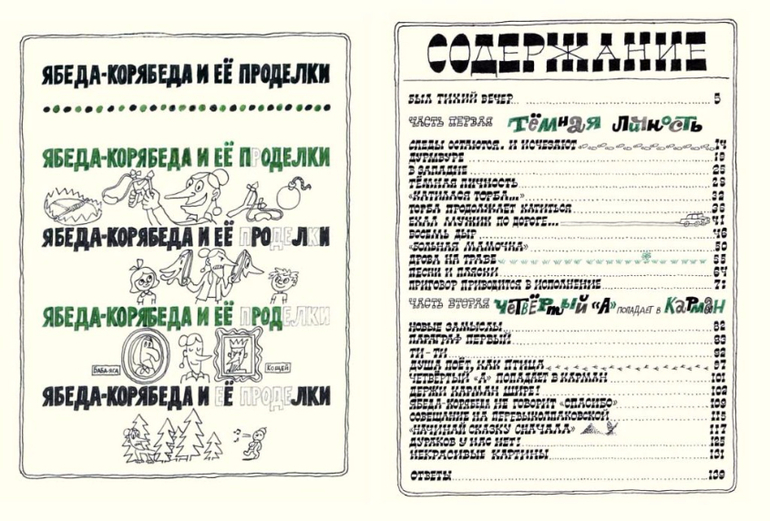 ЯБЕДА-КОРЯБЕДА И ЕЁ ПРОДЕЛКИ
ЯБЕДА-КОРЯБЕДА И ЕЁ ПРОДЕЛКИ
ЯБЕДА-КОРЯБЕДА И ЕЁ ПРОДЕЛКИ
ЯБЕДА-КОРЯБЕДА И ЕЁ ПРОДЕЛКИ
БАБА-ЯГА
КОЩЕЙ
ЯБЕДА-КОРЯБЕДА И ЕЁ ПРОДЕЛКИ
СОДЕРЖАНИЕ
БЫЛ ТИХИЙ ВЕЧЕР 5
ЧАСТЬ ПЕРВАЯ ТЁМНАЯ ЛИЧНОСТЬ
СЛЕДЫ ОСТАЮТСЯ. И ИСЧЕЗАЮТ 14
ДУРМБУРГ
В ЗАПАДНЕ
ТЁМНАЯ ЛИЧНОСТЬ
«КАТИЛАСЬ ТОРБА...»
ТОРБА ПРОДОЛЖАЕТ КАТИТЬСЯ
ЕХАЛ МУЖИК ПО ДОРОГЕ... 41
ВОСЕМЬ ДЫР
«БОЛЬНАЯ МАМОЧКА» 50
ДРОВА НА ТРАВЕ 55
ПЕСНИ И ПЛЯСКИ 64
ПРИГОВОР ПРИВОДИТСЯ В ИСПОЛНЕНИЕ 71
ЧАСТЬ ВТОРАЯ ЧЕТВЁРТЫЙ «А» ПОПАДАЕТ В КАРМАН
НОВЫЕ ЗАМЫСЛЫ 82
ПАРАГРАФ ПЕРВЫЙ
ТИ-ТИ
ДУША ПОЁТ, КАК ПТИЦА 97
ЧЕТВЁРТЫЙ «А» ПОПАДАЕТ В КАРМАН
ДЕРЖИ КАРМАН ШИРЕ!
ЯБЕДА-КОРЯБЕДА НЕ ГОВОРИТ «СПАСИБО» 109
СОВЕЩАНИЕ НА ПЕРЕВЫКОЛПАКОВСКОЙ 115
«НАЧИНАЙ СКАЗКУ СНАЧАЛА» 117
ДУРАКОВ У НАС НЕТ! 125
НЕКРАСИВЫЕ КАРТИНЫ 131
ОТВЕТЫ 139